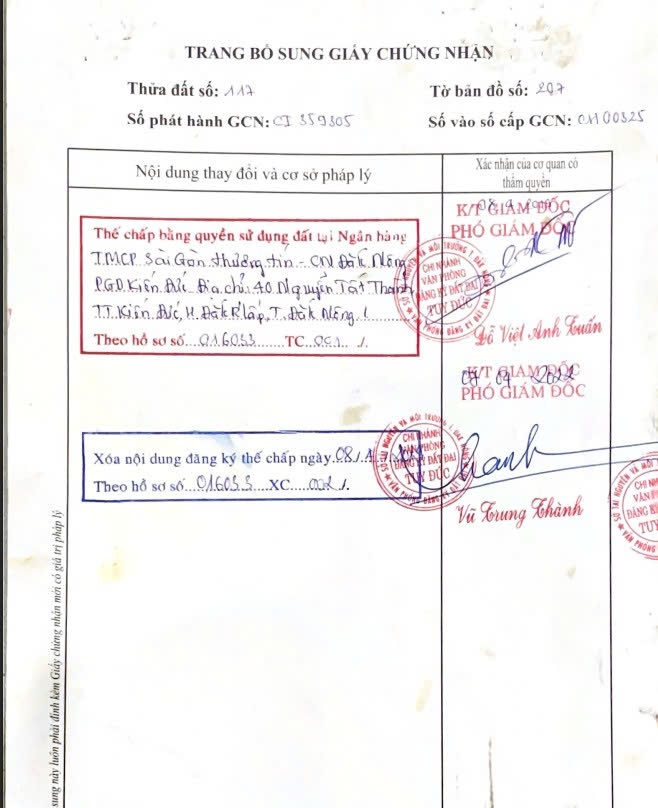 TRANG BỔ SUNG GIẤY CHỨNG NHẬN
Thửa đất số: 117
Tờ bản đồ số: 207
Số phát hành GCN: CI 359305
Số vào sổ cấp GCN: CH00325
Nội dung thay đổi và cơ sở pháp lý
Xác nhận của cơ quan có
thẩm quyền
Thế chấp bằng quyền sử dụng đất tại Ngân hàng
T.M.C.P Sài Gòn thương tín - CN Đăk Nông
PGD Kiến Đức Địa chỉ: 40 Nguyễn Tất Thành
TT. Kiến Đức, H. Đăk R'lấp, T. Đăk Nông ./.
Theo hồ sơ số...016053......TC..001../.
K/T GIÁM ĐỐC
PHÓ GIÁM ĐỐC
SỞ TÀI NGUYÊN VÀ MÔI TRƯỜNG T. ĐẮK
CHI NHÁNH
VĂN PHÒNG
ĐĂNG KÝ ĐẤT ĐAI
TUY ĐỨC
VĂN PHÒNG ĐĂNG KÝ ĐẤT ĐAI
Đỗ Viết Anh Tuấn
K/T GIÁM ĐỐC
PHÓ GIÁM ĐỐC
Xóa nội dung đăng ký thế chấp ngày.08/
Theo hồ sơ số...016053...XC....002./.
SỞ TÀI NGUYÊN VÀ MÔI TRƯỜNG T. ĐẮK
CHI NHÁNH
VĂN PHÒNG
ĐĂNG KÝ ĐẤT ĐAI
TUY ĐỨC
Vũ Trung Thành
CHI NH
VĂN P
ĐĂNG K
TUY
sung này luôn phải đính kèm Giấy chứng nhận mới có giá trị pháp lý